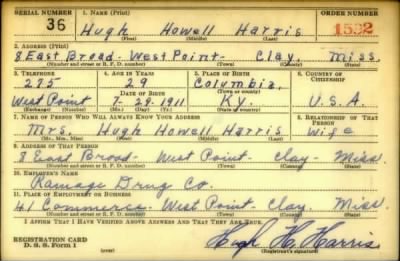 SERIAL NUMBER 1. NAME (Print) ORDER NUMBER
36 Hugh Howell Harris 1592
(First) (Middle) (Last)
2. ADDRESS (Print)
8 East Broad - West Point - Clay, Miss.
(Number and street or R. F. D. number) (Town) (County) (State)
3. TELEPHONE 4. AGE IN YEARS 5. PLACE OF BIRTH 6. COUNTRY OF CITIZENSHIP
275 29 Columbia,
DATE OF BIRTH
West Point 7-29-1911 Ky. U.S.A.
(Exchange) (Number) (Mo.) (Day) (Yr.) (State or country)
7. NAME OF PERSON WHO WILL ALWAYS KNOW YOUR ADDRESS 8. RELATIONSHIP OF THAT PERSON
Mrs. Hugh Howell Harris Wife
(Mr., Mrs., Miss) (First) (Middle) (Last)
9. ADDRESS OF THAT PERSON
8 East Broad - West Point - Clay - Miss.
(Number and street or R. F. D. number) (Town) (County) (State)
10. EMPLOYER'S NAME
Ramage Drug Co.
11. PLACE OF EMPLOYMENT OR BUSINESS
41 Commerce - West Point - Clay, Miss.
(Number and street or R. F. D. number) (Town) (County) (State)
I AFFIRM THAT I HAVE VERIFIED ABOVE ANSWERS AND THAT THEY ARE TRUE.
REGISTRATION CARD Hugh H. Harris
D. S. S. Form 1 (Registrant's signature)